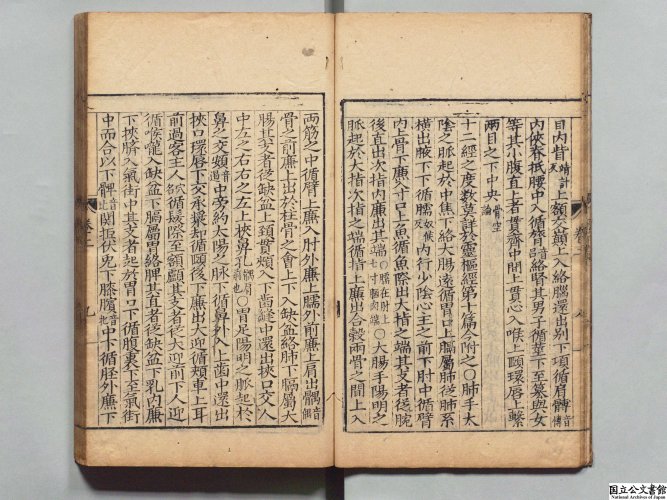 目内眥上額交顚上入絡腦還出別下項循肩髆音博
内俠脊抵腰中入循膂絡腎其男子循莖下至篡與女
等其小腹直上者貫齊中間上貫心入喉上頤環唇上繫
兩目之下中央骨空論
十二經之度數莫詳於靈樞經第十篇今附之○肺手太
陰之脈起於中焦下絡大腸還循胃口上膈屬肺從肺系
橫出腋下下循臑奴候反内行少陰心主之前下肘中循臂
内上骨下廉入寸口上魚循魚際出大指之端其支者從腕
後直出次指内廉出其端臑在肘上七寸○大腸手陽明之
脈起於大指次指之端循指上廉出合谷兩骨之間上入
兩筋之中循臂上廉入肘外廉上臑外前廉上肩出髃音隅
骨之前廉上出於柱骨之會上下入缺盆絡肺下膈屬大
腸其支者從缺盆上頸貫頰入下齒縫中還出挾口交人
中左之右右之左上挾鼻孔髃肩端也○胃足陽明之脈起於
鼻之交頞音遏中旁約太陽之脈下循鼻外入上齒中還出
挾口環唇下交承漿却循頤後下廉出大迎循頰車上耳
前過客主人穴名循髮際至額顱其支者從大迎前下人迎
循喉嚨入缺盆下膈屬胃絡脾其直者從缺盆下乳内廉
下挾臍入氣街中其支者起於胃口下循腹裏下至氣街
中而合以下髀音比関抵伏兎下膝臏音牝中下循脛外廉下
卷二
九
国立公文書館
National Archives of Japan